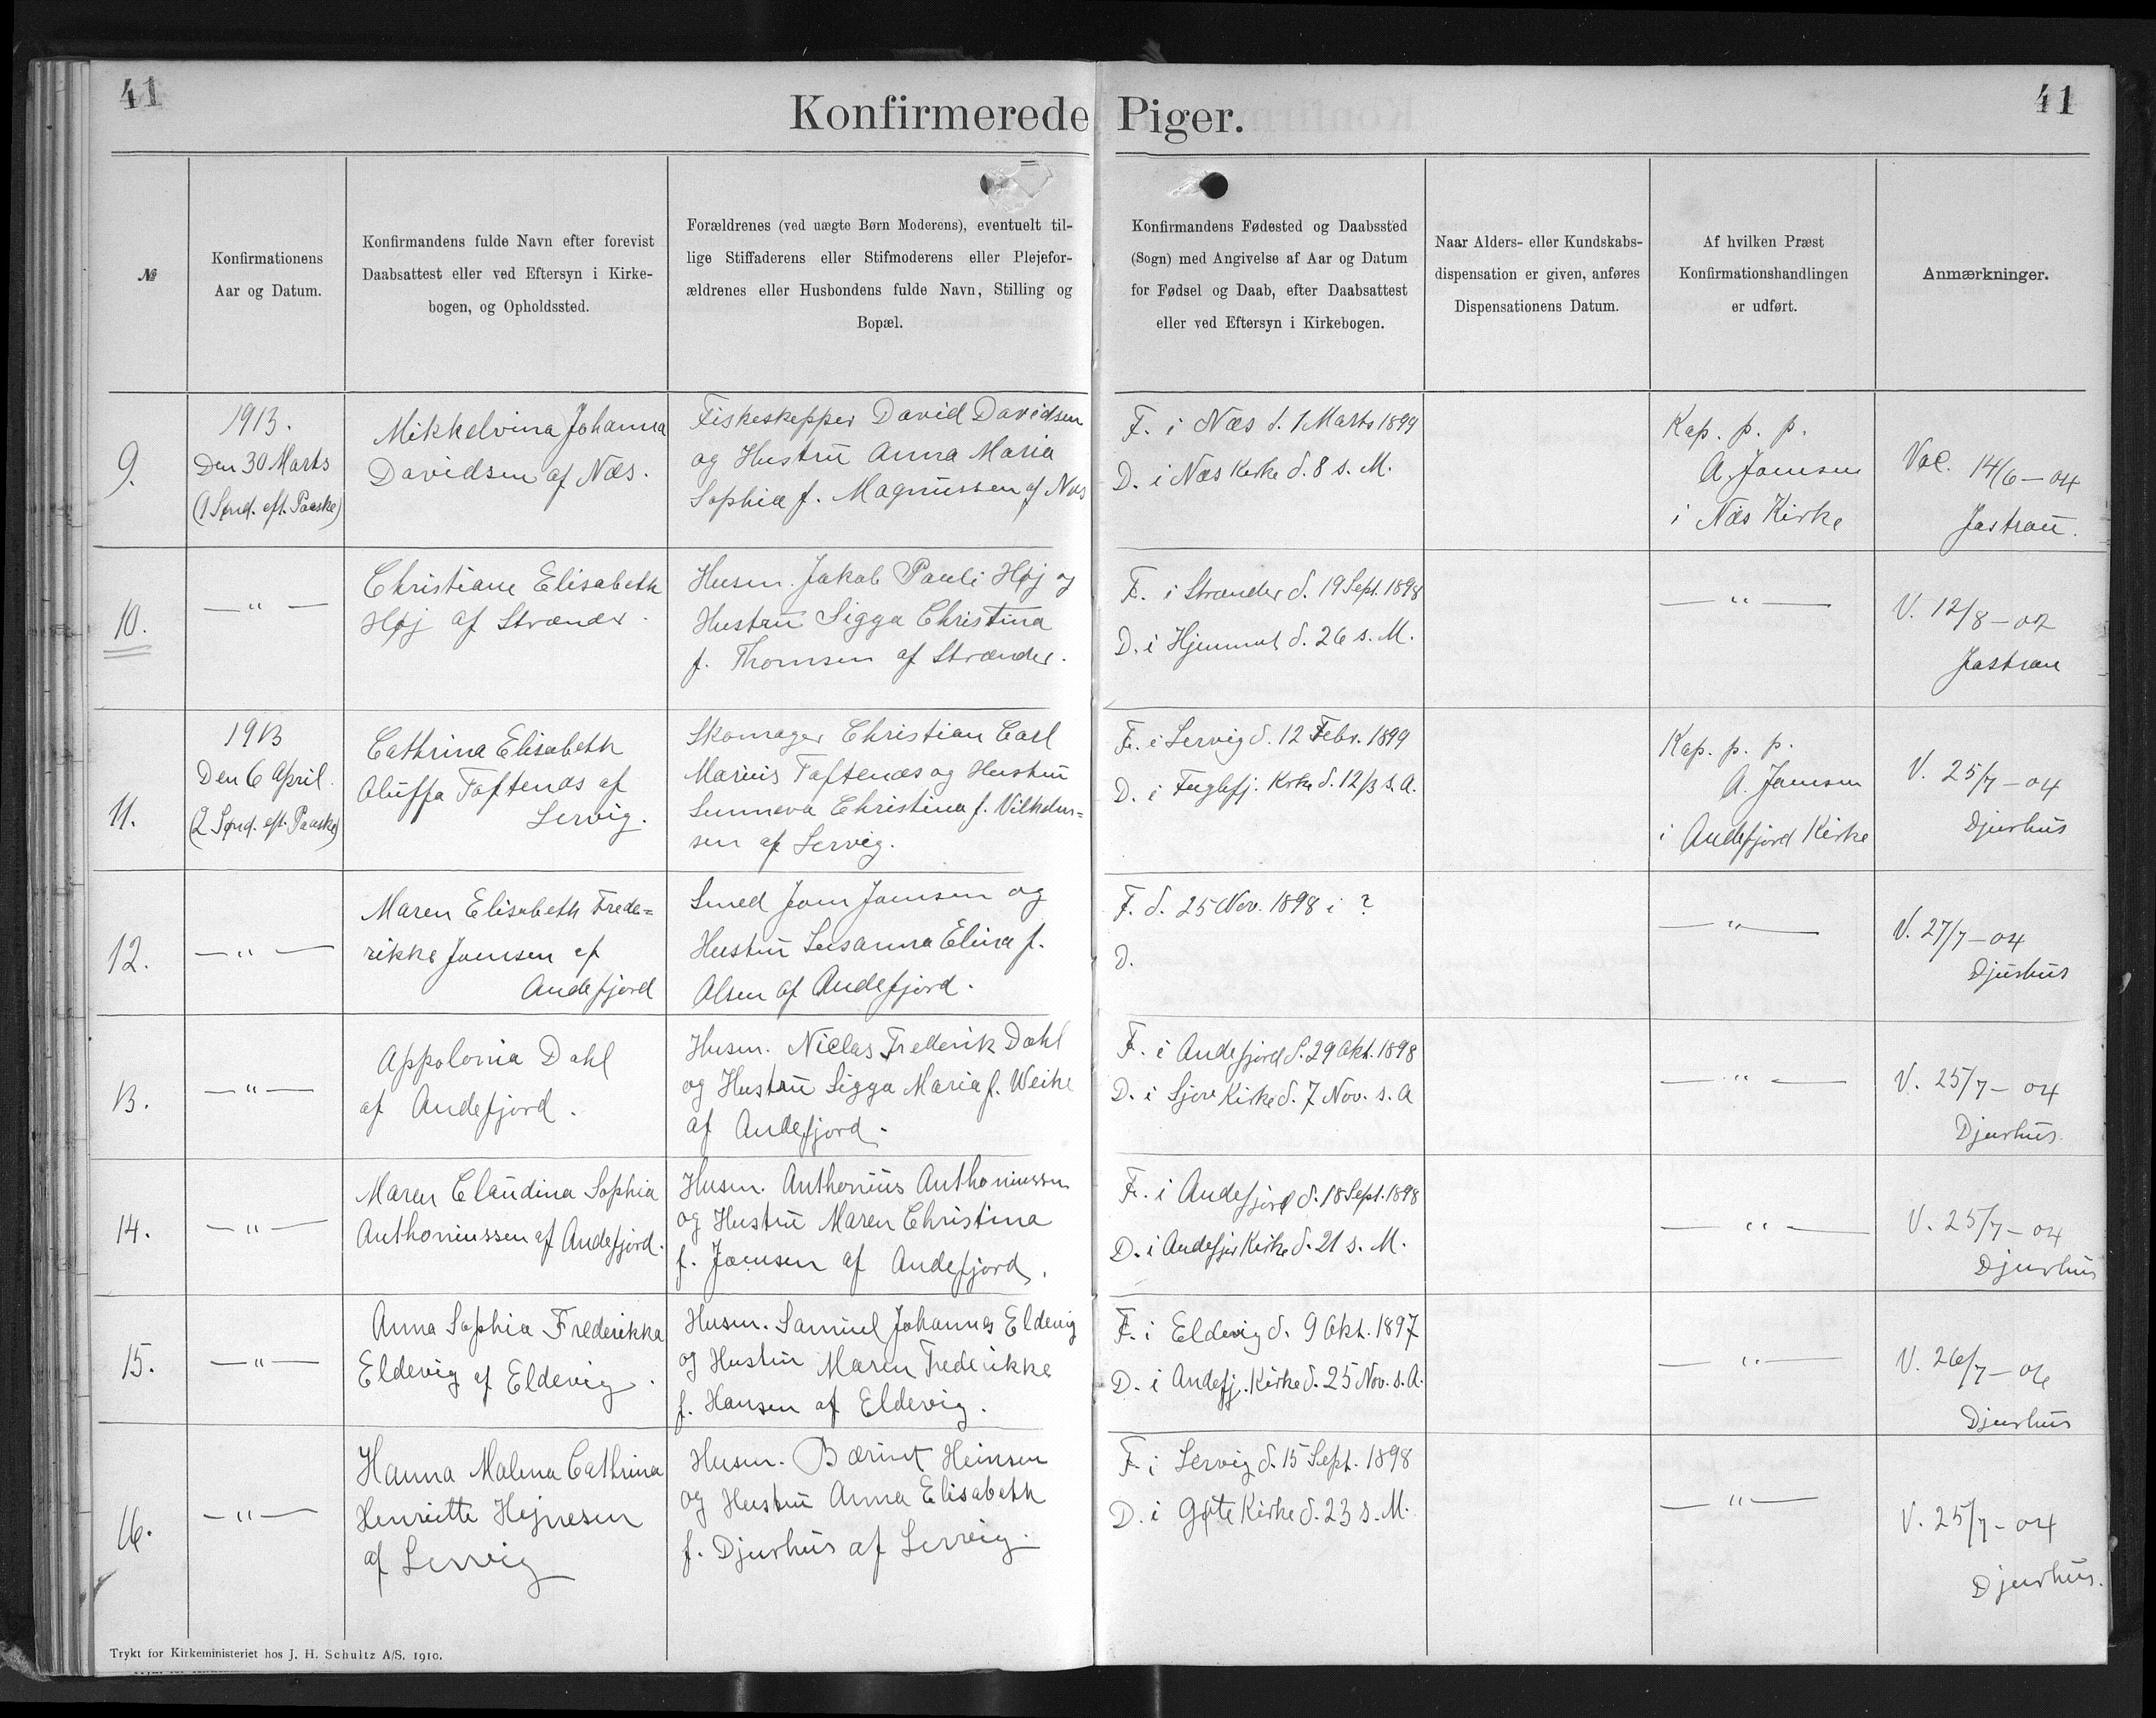 41
41
Konfirmerede Piger.
№
Konfirmationens
Aar og Datum.
Konfirmandens fulde Navn efter forevist
Daabsattest eller ved Eftersyn i Kirke-
bogen, og Opholdssted.
Forældrenes (ved uægte Børn Moderens), eventuelt til-
lige Stiffaderens eller Stifmoderens eller Plejefor-
ældrenes eller Husbondens fulde Navn, Stilling og
Bopæl.
Konfirmandens Fødested og Daabssted
(Sogn) med Angivelse af Aar og Datum
for Fødsel og Daab, efter Daabsattest
eller ved Eftersyn i Kirkebogen.
Naar Alders- eller Kundskabs-
dispensation er given, anføres
Dispensationens Datum.
Af hvilken Præst
Konfirmationshandlingen
er udført.
Anmærkninger.
9.
1913.
Den 30 Marts
(1 Sønd. eft. Paaske)
Mikkelvina Johanna
Davidsen af Næs.
Fiskeskipper David Davidsen
og Hustru Anna Maria
Sophia f. Magnussen af Næs
F. i Næs d. 1 Marts 1899
D. i Næs Kirke d. 8 s. M.
Kap. p. p.
A. Joensen
i Næs Kirke
Vac. 14/6 - 04
Jastrau.
10.
— " —
Christiane Elisabeth
Høj af Strænder.
Husm. Jakob Pauli Høj og
Hustru Sigga Christina
f. Thomsen af Strænder.
F. i Strænder d. 19 Sept. 1898
D. i Hjemmet d. 26 s. M.
— " —
V. 12/8 - 02
Jastrau
11.
1913
Den 6 April.
(2 Sønd. eft. Paaske)
Cathrina Elisabeth
Oluffa Toftenæs af
Lervig.
Skomager Christian Carl
Marius Toftenæs og Hustru
Sunneva Christina f. Vilhelm=
sen af Lervig.
F. i Lervig d. 12 Febr. 1899
D. i Fuglefj. Kirke d. 12/3 s. A.
Kap. p. p.
A. Joensen
i Andefjord Kirke
V. 25/7 - 04
Djurhus
12.
— " —
Maren Elisabeth Frede=
rikke Joensen af
Andefjord
Smed Joen Joensen og
Hustru Susanna Elina f.
Olsen af Andefjord.
F. d. 25 Nov. 1898 i ?
D.
— " —
V. 27/7 - 04
Djurhus
13.
— " —
Appolonia Dahl
af Andefjord.
Husm. Niclas Frederik Dahl
og Hustru Sigga Maria f. Weihe
af Andefjord.
F. i Andefjord d. 29 Okt. 1898
D. i Sjov Kirke d. 7 Nov. s. A
— " —
V. 25/7 - 04
Djurhus.
14.
— " —
Maren Claudina Sophia
Anthoniussen af Andefjord.
Husm. Anthonius Anthoniussen
og Hustru Maren Christina
f. Joensen af Andefjord.
F. i Andefjord d. 18 Sept. 1898
D. i Andefjor Kirke d. 21 s. M.
— " —
V. 25/7 - 04
Djurhus
15.
— " —
Anna Sophia Frederikka
Eldevig af Eldevig.
Husm. Samuel Johannes Eldevig
og Hustru Maren Frederikke
f. Hansen af Eldevig.
F. i Eldevig d. 9 Okt. 1897
D. i Andefj. Kirke d. 25 Nov. s. A.
— " —
V. 26/7 - 06
Djurhus
16.
— " —
Hanna Malena Cathrina
Henriette Hejnesen
af Lervig
Husm. Bærint Heinsen
og Hustru Anna Elisabeth
f. Djurhus af Lervig.
F. i Lervig d. 15 Sept. 1898
D. i Gøte Kirke d. 23 s. M.
— " —
V. 25/7 - 04
Djurhus.
Trykt for Kirkeministeriet hos J. H. Schultz A/S. 1910.